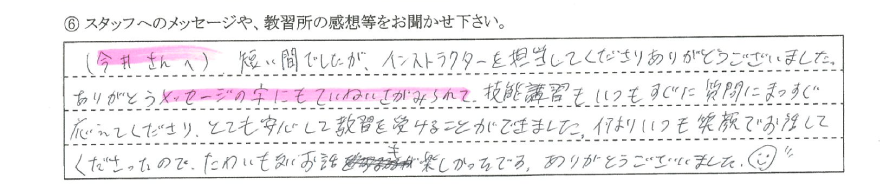 ⑥ スタッフへのメッセージや、教習所の感想等をお聞かせ下さい。
(今井さんへ) 短い間でしたが、インストラクターを担当してくださりありがとうございました。
ありがとうメッセージの字にもていねいさがみられて、技能講習もいつもすぐに質問にまっすぐ
応えてくださり、とても安心して教習を受けることができました。何よりいつも笑顔でお話して
くださったので、たわいもないお話も楽しかったです。ありがとうございました。